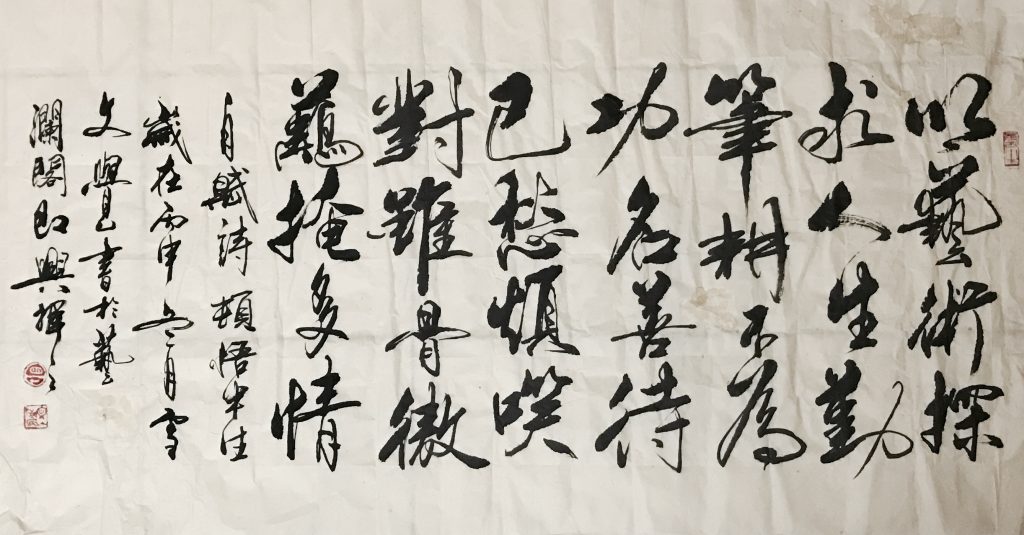 以藝術探
求人生勤
筆耕不為
功名善待
己愁煩笑
對雖骨傲
難掩多情
自賦詩頓悟半生
歲在丙申冬月雪
文興書於藝
瀾閣即興揮之